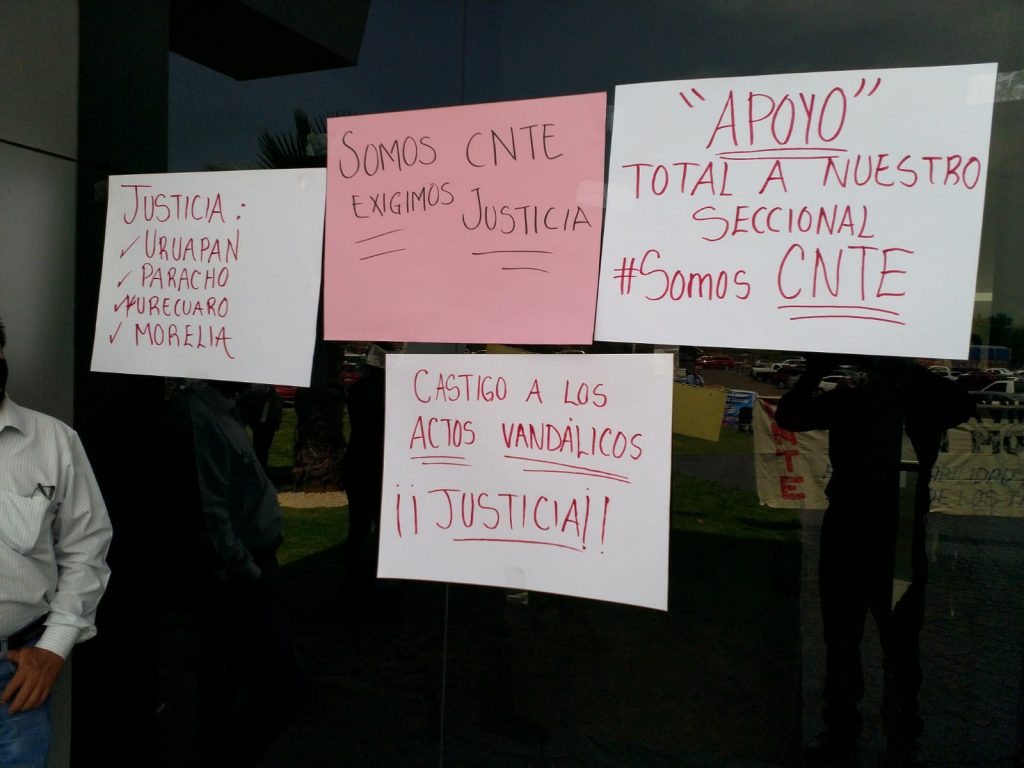 JUSTICIA:
✓ URUAPAN
✓ PARACHO
✓ YURECUARO
✓ MORELIA
SOMOS CNTE
EXIGIMOS JUSTICIA
"APOYO"
TOTAL A NUESTRO
SECCIONAL
#SOMOS CNTE
CASTIGO A LOS
ACTOS VANDÁLICOS
¡¡JUSTICIA!!
DE LOS